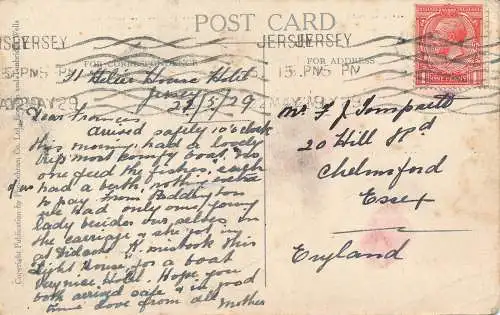 POST CARD
JERSEY JERSEY
FOR CORRESPONDENCE
FOR ADDRESS
15 PM
MAY 29
St Helier House Hotel
Jersey
22/5/29
Dear Frances
Arrived safely 10 o'clock
this morning, had a lovely
trip most comfy boat, no
one feed the fishes, each
of us had a berth, nothing
to pay. From Paddington
we had only one young
lady besides our selves in
the carriage & she got in
at Didcot. A. mistook this
Light House for a boat
Very nice Hotel. Hope you
both arrived safe & in good
time love from all
Mother
Mr F J Tompsett
20 Hill Rd
Chelmsford
Essex
England
Copyright Publication by Photochrom Co. Ltd., London and Tunbridge Wells